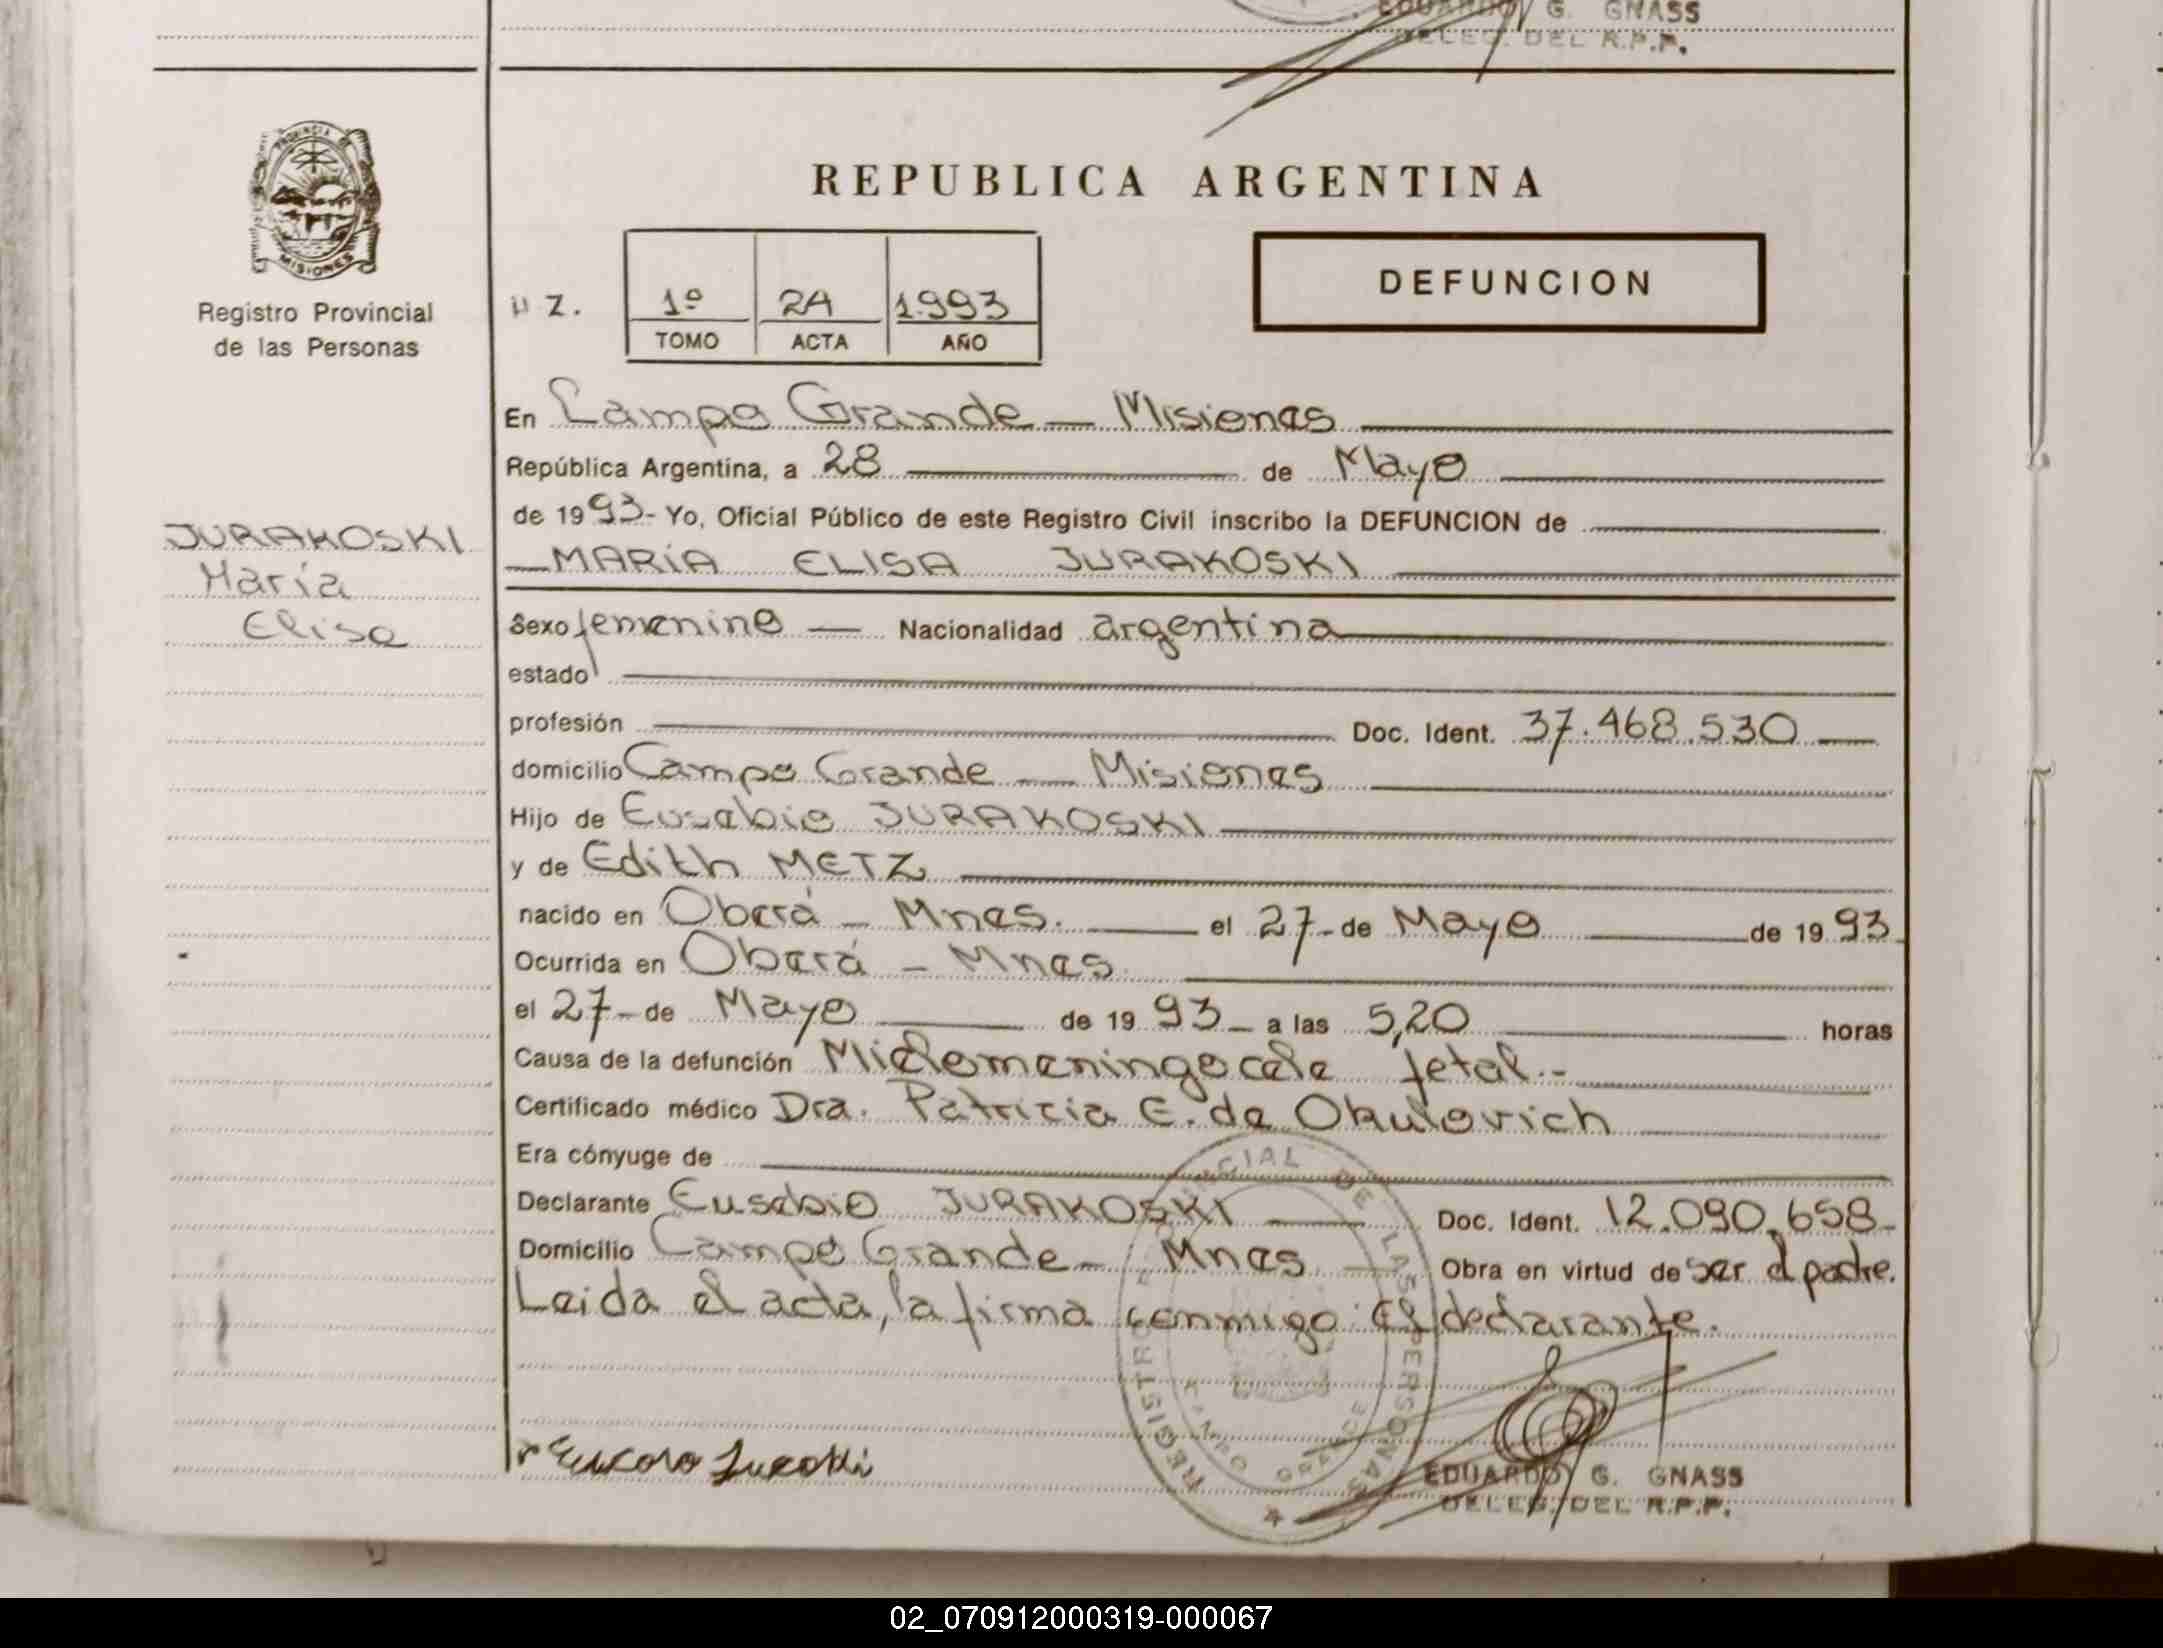 EDUARDO G. GNASS
DELEG. DEL R.P.P.
PROVINCIA DE
MISIONES
Registro Provincial
de las Personas
REPUBLICA ARGENTINA
Z.
1º 24 1.993
TOMO ACTA AÑO
DEFUNCION
En Campo Grande — Misiones
República Argentina, a 28 de Mayo
de 1993- Yo, Oficial Público de este Registro Civil inscribo la DEFUNCION de
MARÍA ELISA JURAKOSKI
JURAKOSKI
María
Elisa
Sexo femenino — Nacionalidad argentina
estado
profesión Doc. Ident. 37.468.530
domicilio Campo Grande — Misiones
Hijo de Eusebio JURAKOSKI
y de Edith METZ
nacido en Oberá - Mnes. el 27- de Mayo de 1993
Ocurrida en Oberá - Mnes.
el 27- de Mayo de 1993 - a las 5,20 horas
Causa de la defunción Mielomeningocele fetal.-
Certificado médico Dra. Patricia E. de Okulovich
Era cónyuge de
Declarante Eusebio JURAKOSKI Doc. Ident. 12.090.658-
Domicilio Campo Grande - Mnes Obra en virtud de ser el padre.
Leida el acta, la firma conmigo el declarante.
REGISTRO PROVINCIAL DE LAS PERSONAS
CAMPO GRANDE
EDUARDO G. GNASS
DELEG. DEL R.P.P.
02_070912000319-000067